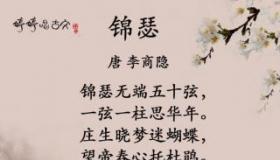 婷婷唱古文
锦瑟
唐 李商隐
锦瑟无端五十弦，
一弦一柱思华年。
庄生晓梦迷蝴蝶，
望帝春心托杜鹃。